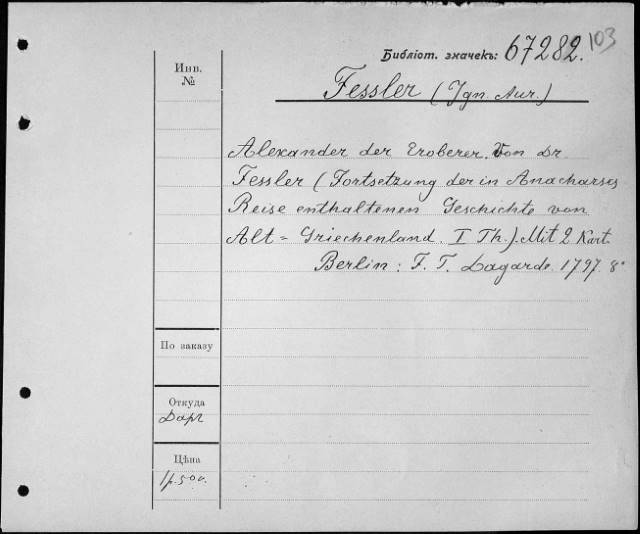 Библіот. значекъ: 67282. 103
Инв.
№
Fessler (Ign. Aur.)
Alexander der Eroberer. Von Dr.
Fessler (Fortsetzung der in Anacharses
Reise enthaltenen Geschichte von
Alt = Griechenland. I Th.). Mit 2 Kart.
Berlin: F. T. Lagarde. 1797. 8°
По заказу
Откуда
Даръ
Цѣна
1 р. 50 к.